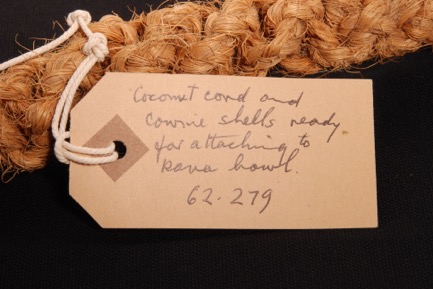 Coconut cord and
cowrie shells ready
for attaching to
kava bowl.
62.279